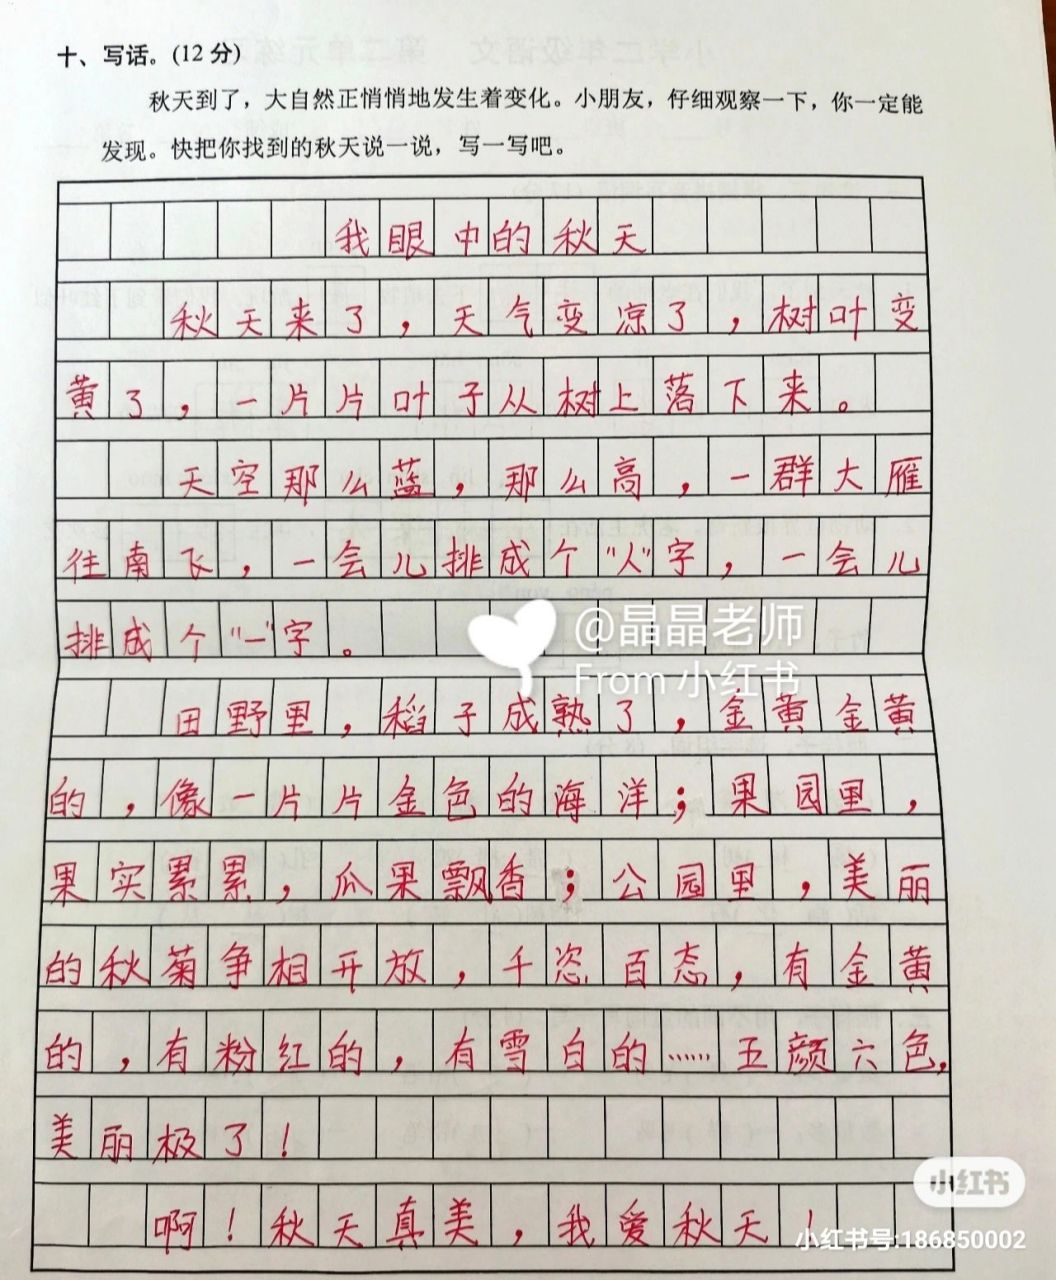 十、写话。(12 分)
秋天到了，大自然正悄悄地发生着变化。小朋友，仔细观察一下，你一定能
发现。快把你找到的秋天说一说，写一写吧。
我眼中的秋天
秋天来了，天气变凉了，树叶变
黄了，一片片叶子从树上落下来。
天空那么蓝，那么高，一群大雁
往南飞，一会儿排成个“人”字，一会儿
排成个“一”字。
@晶晶老师
From 小红书
田野里，稻子成熟了，金黄金黄
的，像一片片金色的海洋；果园里，
果实累累，瓜果飘香；公园里，美丽
的秋菊争相开放，千姿百态，有金黄
的，有粉红的，有雪白的……五颜六色，
美丽极了！
啊！秋天真美，我爱秋天！
小红书
小红书号:186850002